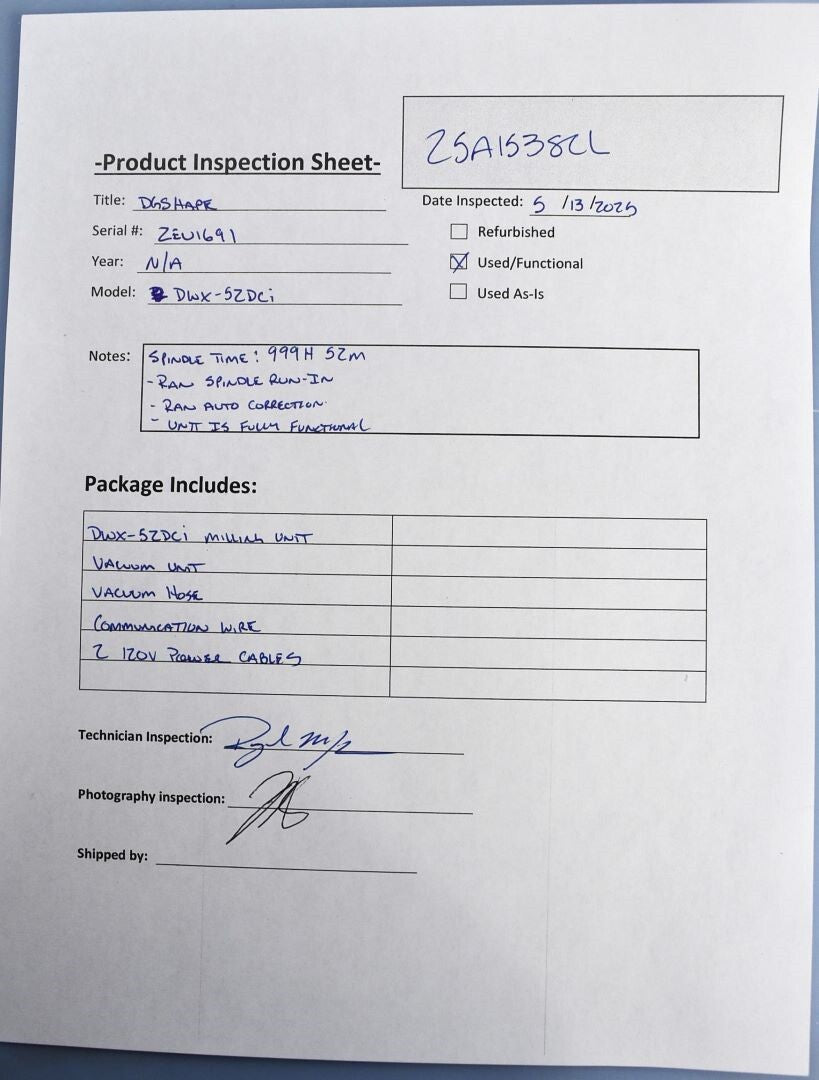 25A1538ZL
-Product Inspection Sheet-
Title: DGSHAPE
Date Inspected: 5 /13 /2025
Serial #: ZEU1691
Refurbished
Year: N/A
Used/Functional
Model: DWX-52DCi
Used As-Is
Notes: SPINDLE TIME: 999H 52M
- RAN SPINDLE RUN-IN
- RAN AUTO CORRECTION.
- UNIT IS FULLY FUNCTIONAL
Package Includes:
DWX-52DCi MILLING UNIT
VACUUM UNIT
VACUUM HOSE
COMMUNICATION WIRE
2 120V POWER CABLES
Technician Inspection:
Photography inspection:
Shipped by: